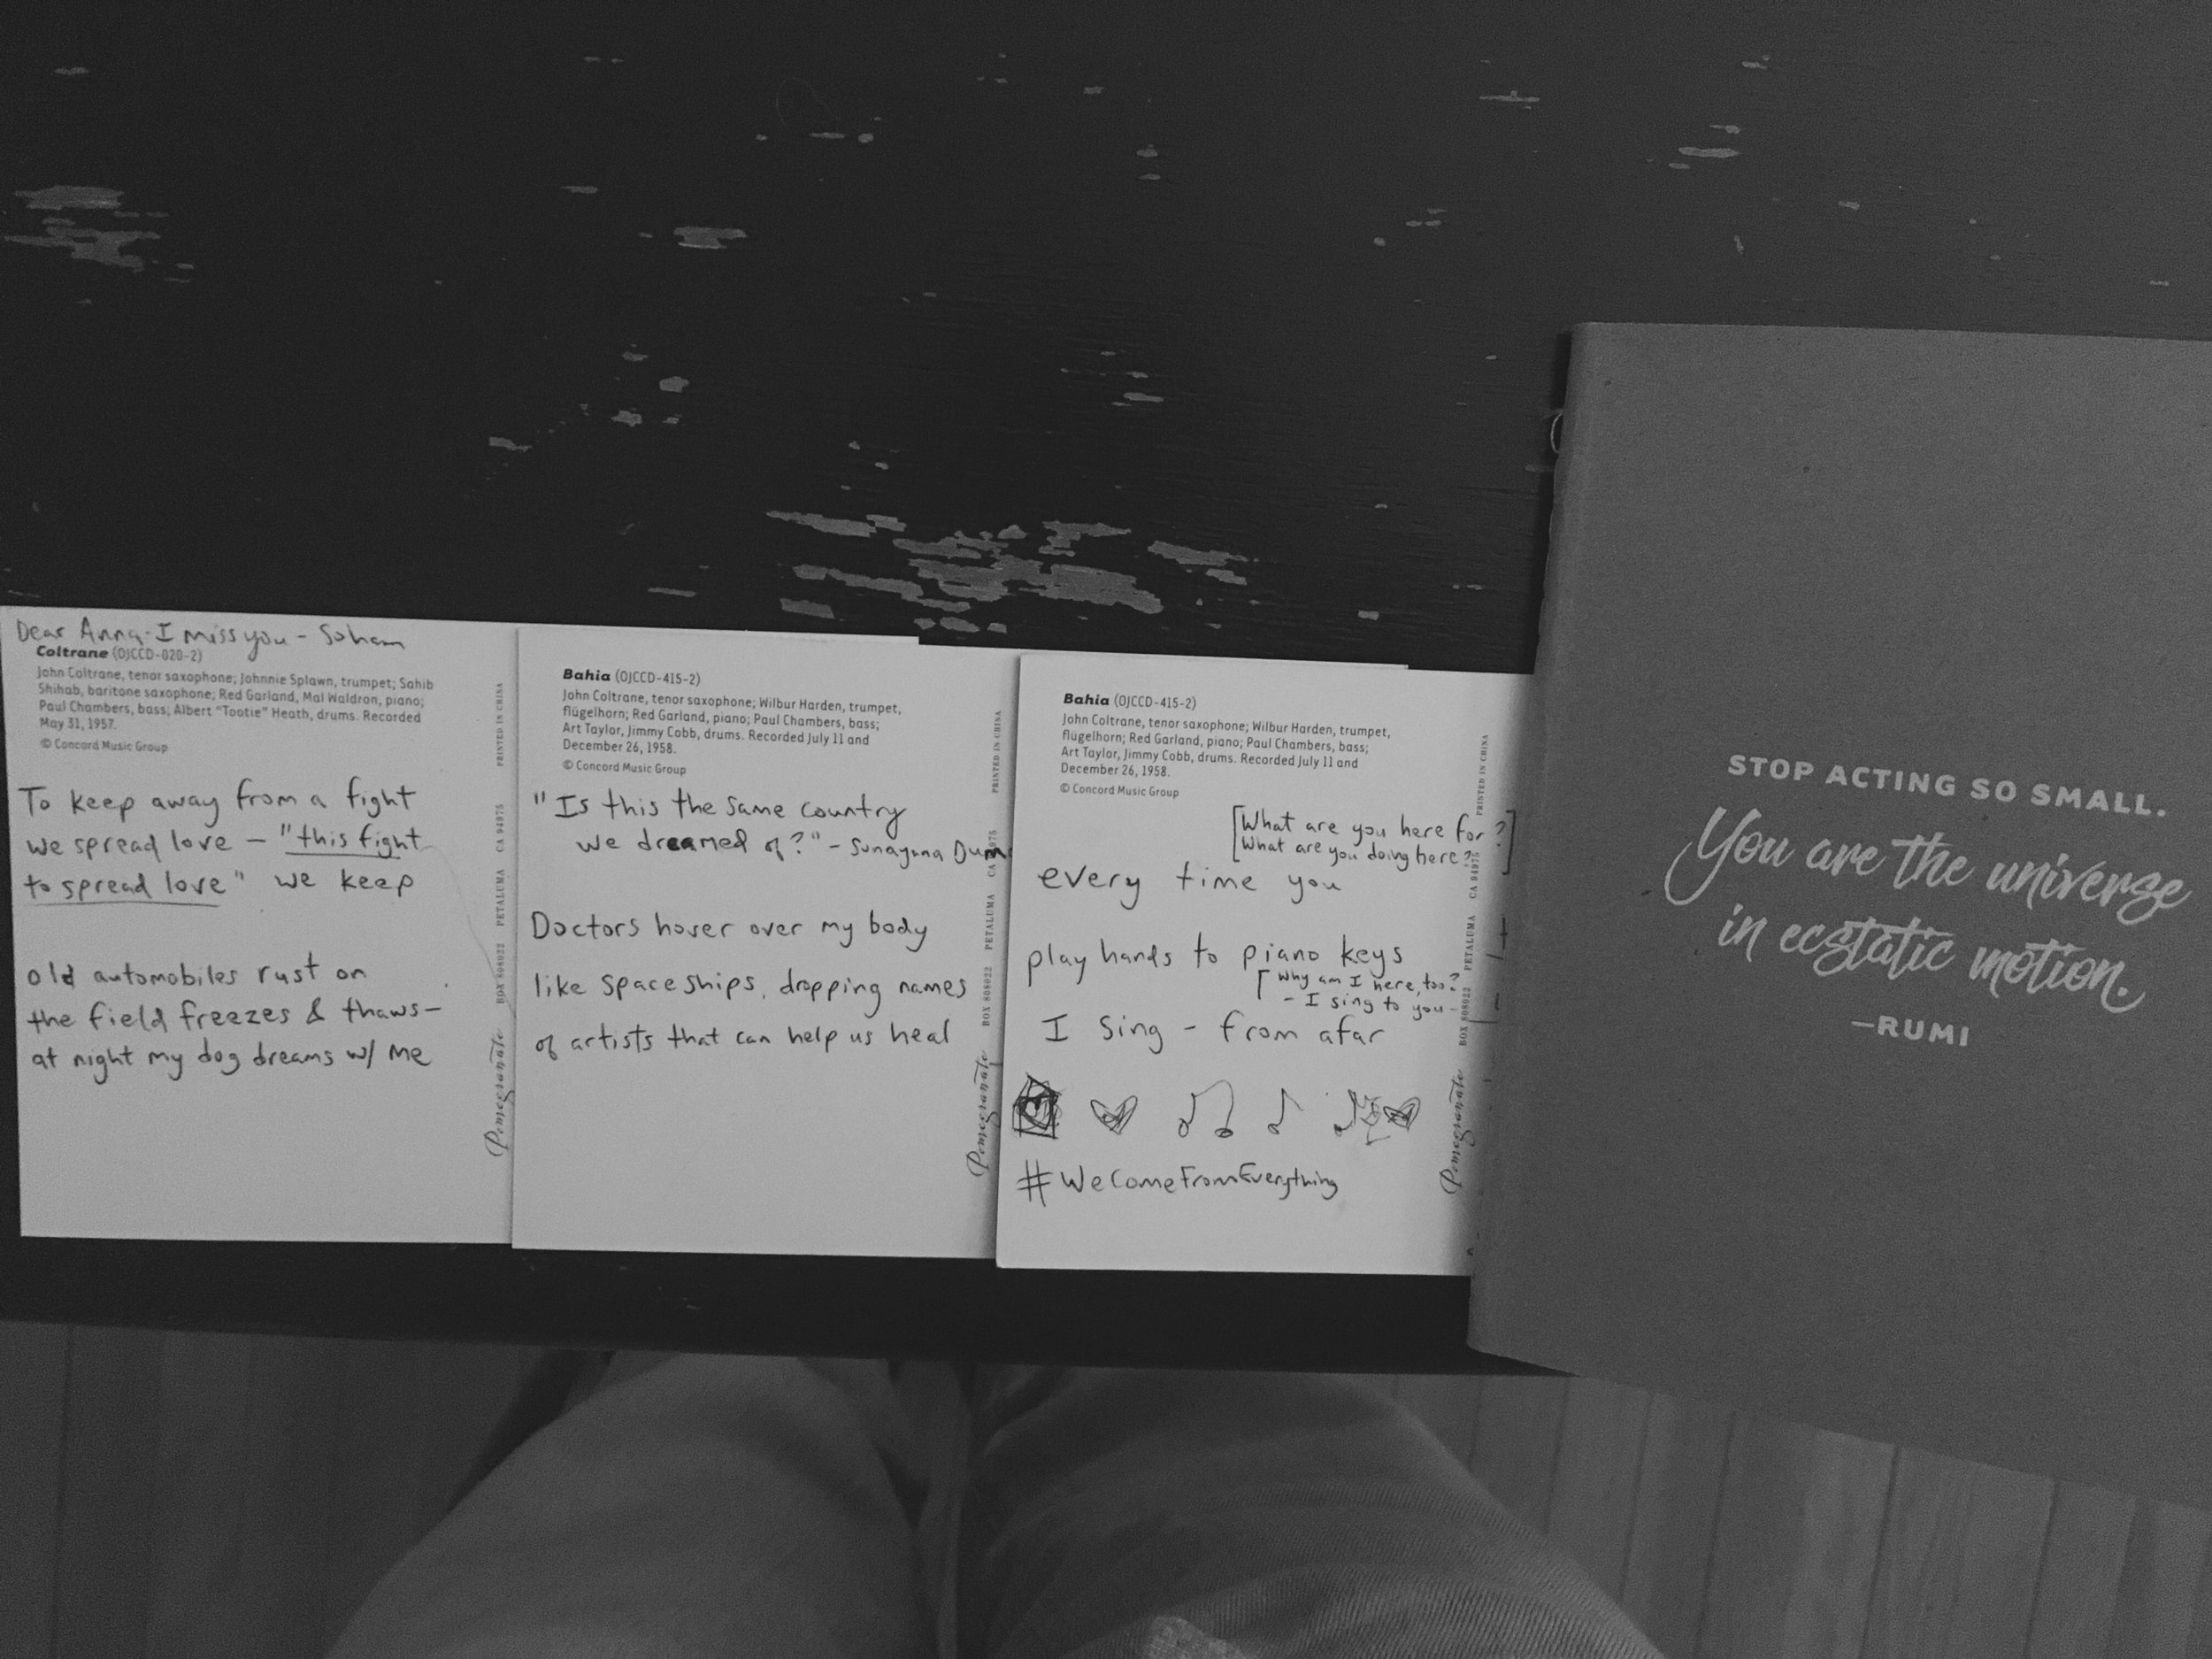 Dear Anna - I miss you - Soham
Coltrane (OJCCD-020-2)
John Coltrane, tenor saxophone; Johnnie Splawn, trumpet; Sahib
Shihab, baritone saxophone; Red Garland, Mal Waldron, piano;
Paul Chambers, bass; Albert "Tootie" Heath, drums. Recorded
May 31, 1957.
© Concord Music Group
To keep away from a fight
we spread love – "this fight
to spread love" we keep
old automobiles rust on
the field freezes & thaws–
at night my dog dreams w/ me
Pomegranate BOX 808022 PETALUMA CA 94975 PRINTED IN CHINA
Bahia (OJCCD-415-2)
John Coltrane, tenor saxophone; Wilbur Harden, trumpet,
flügelhorn; Red Garland, piano; Paul Chambers, bass;
Art Taylor, Jimmy Cobb, drums. Recorded July 11 and
December 26, 1958.
© Concord Music Group
"Is this the same country
we dreamed of?" - Sunayana Dum
Doctors hover over my body
like spaceships, dropping names
of artists that can help us heal
Pomegranate BOX 808022 PETALUMA CA 94975 PRINTED IN CHINA
Bahia (OJCCD-415-2)
John Coltrane, tenor saxophone; Wilbur Harden, trumpet,
flügelhorn; Red Garland, piano; Paul Chambers, bass;
Art Taylor, Jimmy Cobb, drums. Recorded July 11 and
December 26, 1958.
© Concord Music Group
[What are you here for?]
[What are you doing here?]
every time you
play hands to piano keys
[Why am I here, too?
- I sing to you -
I sing - from afar
#WeComeFromEverything
Pomegranate BOX 808022 PETALUMA CA 94975 PRINTED IN CHINA
STOP ACTING SO SMALL.
You are the universe
in ecstatic motion.
—RUMI